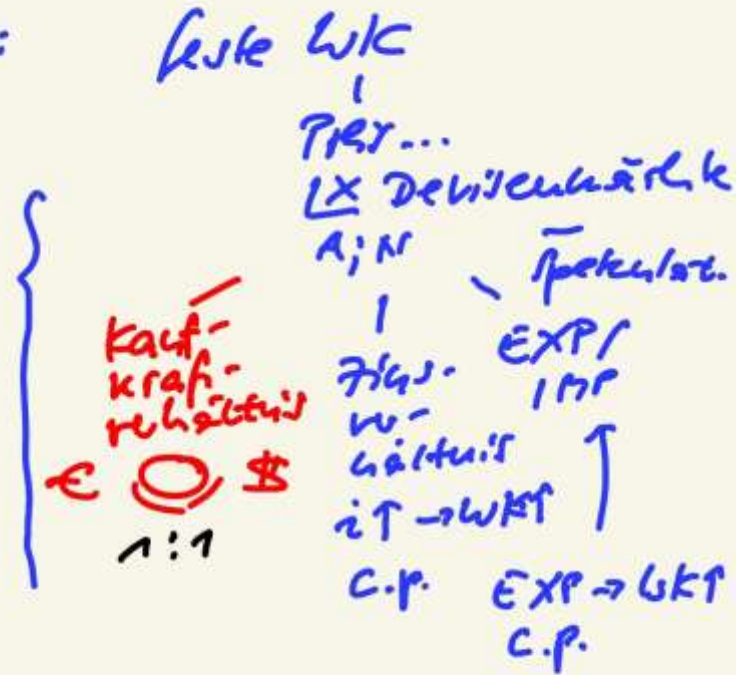 feste WK
Devisenmärkte
A; N
Spekulat.
Kauf-
kraft-
verhältnis
€ $
1:1
Zins-
ver-
hältnis
i↑ → WK↑
c.p.
EXP/
IMP
EXP → WK↑
c.p.